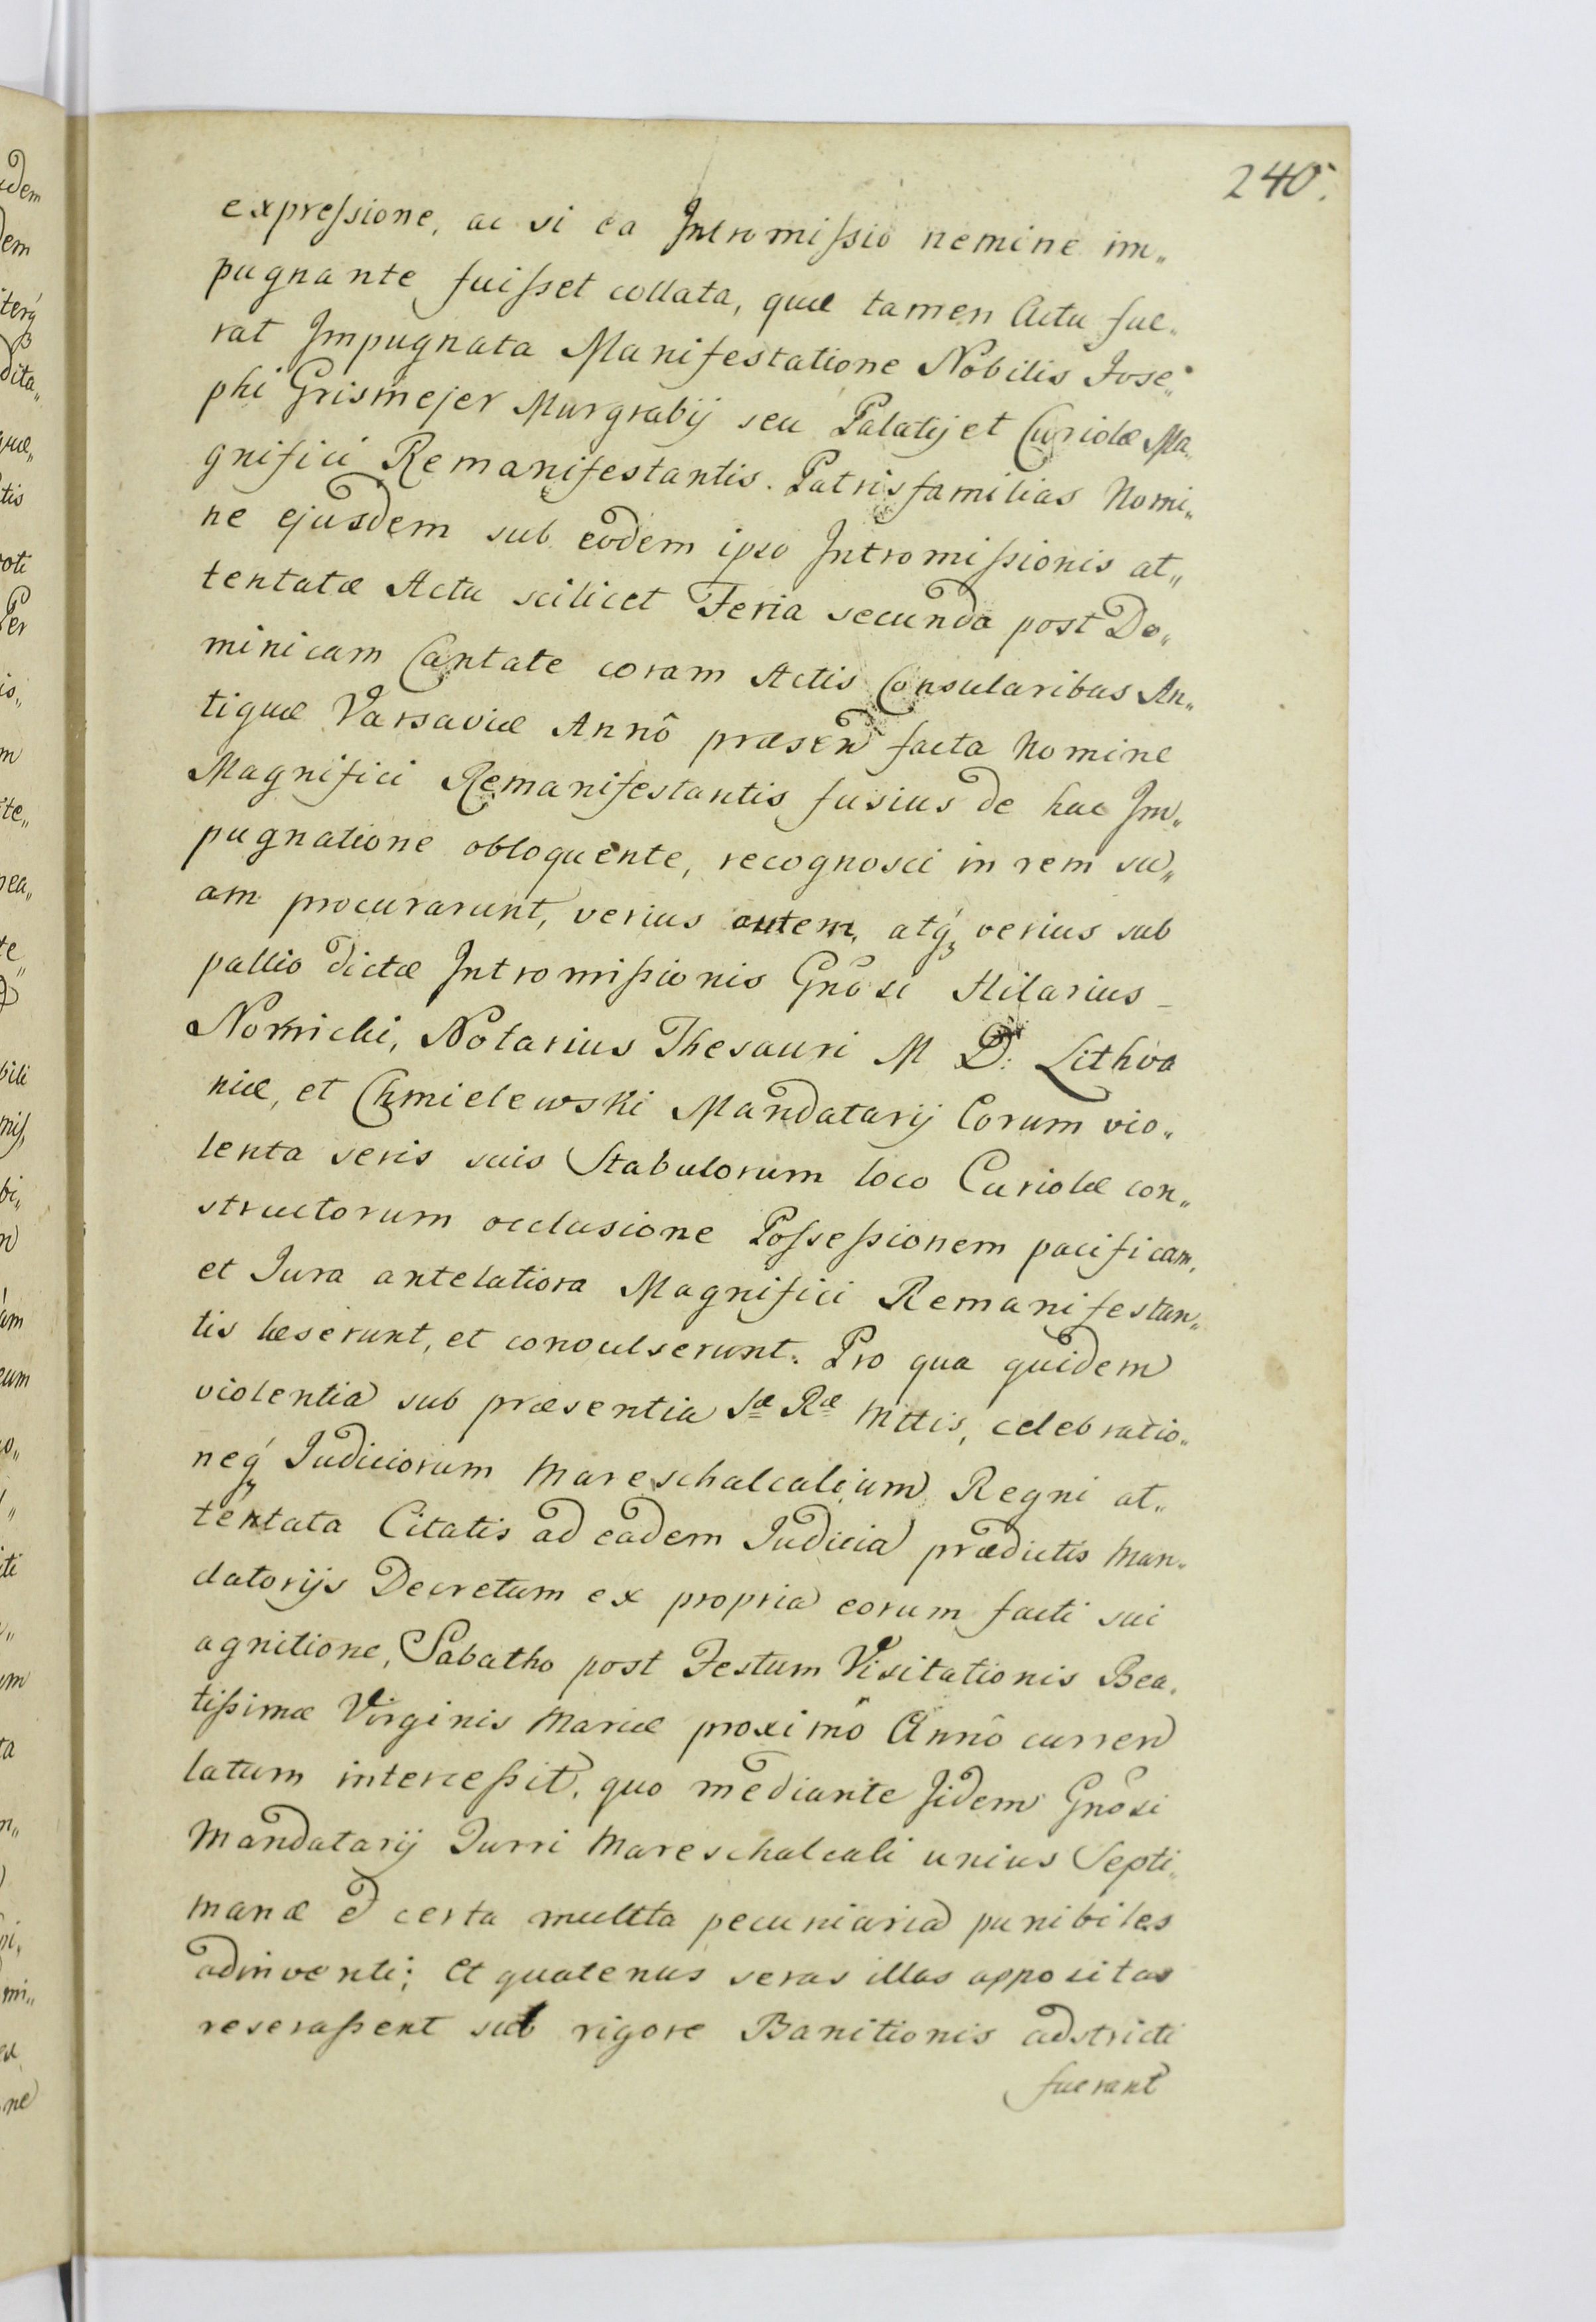 240.
expressione, ac si ea Intromissio nemine im„
pugnante fuisset collata, quæ tamen Actu fue„
rat Impugnata Manifestatione Nobilis Jose„
phi Grismejer Murgrabij seu Palatij et Curiolæ Ma„
gnifici Remanifestantis. Patrisfamilias Nomi„
ne ejusdem sub eodem ipso Intromissionis at„
tentatæ Actu scilicet Feria secunda post Do„
minicam Cantate coram Actis Consularibus An„
tiquæ Varsaviæ Annô præsen facta Nomine
Magnifici Remanifestantis fusius de hac Im„
pugnatione obloquente, recognosci in rem su„
am procurarunt, verius autem, atq́ verius sub
pallio dictæ Intromissionis Gnosi Hilarius
Nowicki, Notarius Thesauri M D: Lithva
niæ, et Chmielewski Mandatarij Eorum vio„
lenta seris suis Stabulorum loco Curiolæ con„
structorum occlusione Possessionem pacificam,
et Jura antelatiora Magnifici Remanifestan„
tis læserunt, et convulserunt. Pro qua quidem
violentia sub præsentia Sæ Ræ Mttis, celebratio„
neq́ Judiciorum Mareschalcalium Regni at„
tentata Citatis ad eadem Judicia prædictis Man„
datorijs Decretum ex propria eorum facti sui
agnitione, Sabatho post Festum Visitationis Bea„
tissimæ Virginis Mariæ proximô Annô curren
latum intercessit, quo mediante Iidem Gnosi
Mandatarij Turri Mareschalcali unius Septi„
manæ et certa multta pecuniaria punibiles
adinventi; et quatenus seras illas appositas
reserassent sub rigore Banitionis adstricti
fuerant